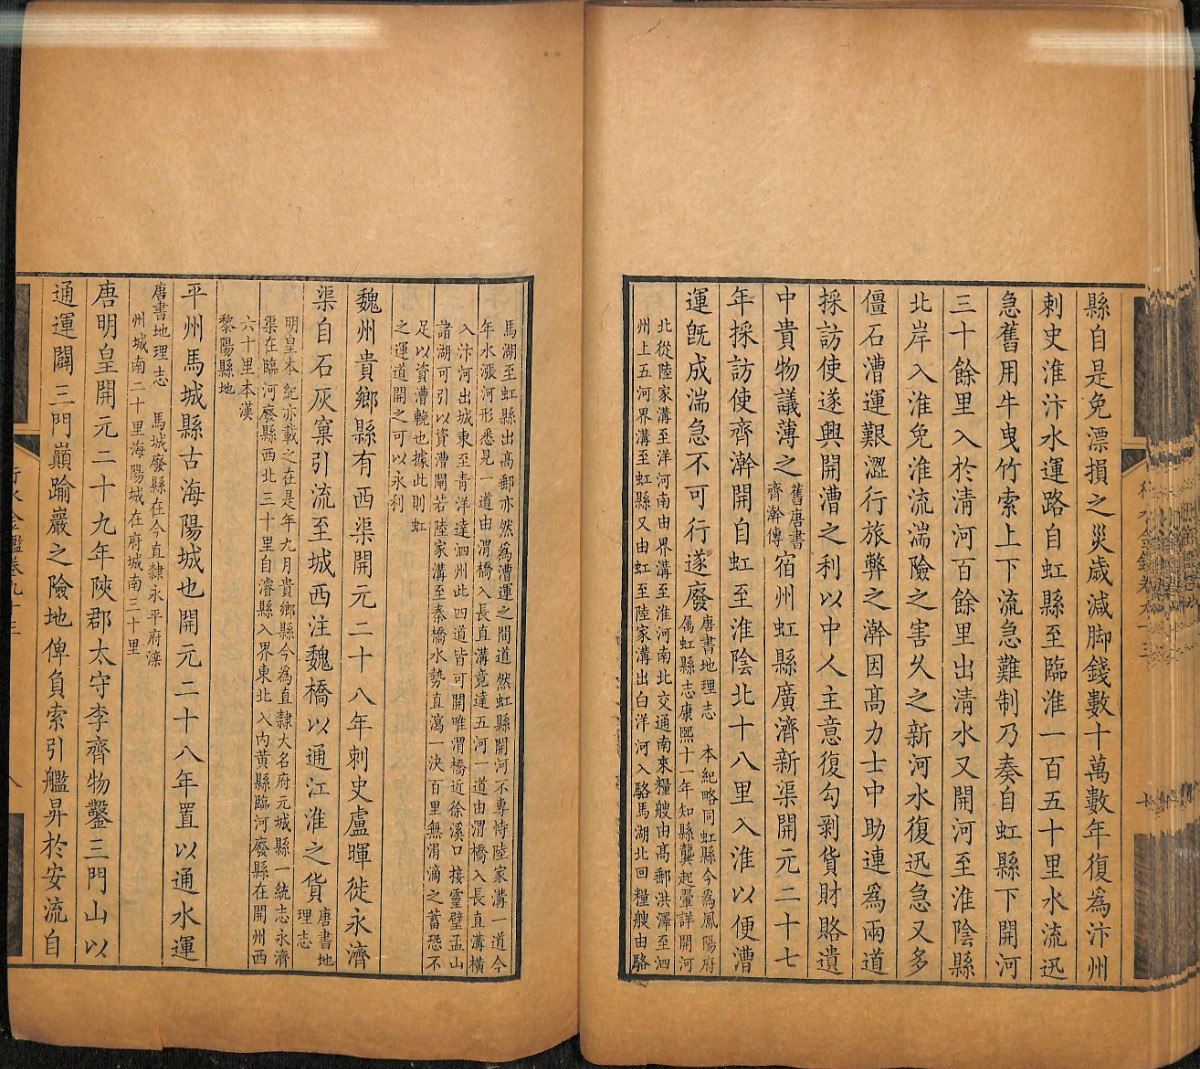 縣自是免漂損之災歲減脚錢數十萬數年復爲汴州
刺史淮汴水運路自虹縣至臨淮一百五十里水流迅
急舊用牛曳竹索上下流急難制乃奏自虹縣下開河
三十餘里入於清河百餘里出清水又開河至淮陰縣
北岸入淮免淮流湍險之害久之新河水復迅急又多
僵石漕運艱澀行旅弊之澣因高力士中助連爲兩道
採訪使遂興開漕之利以中人主意復勾剥貨財賂遺
中貴物議薄之
舊唐書
齊澣傳
宿州虹縣廣濟新渠開元二十七
年採訪使齊澣開自虹至淮陰北十八里入淮以便漕
運旣成湍急不可行遂廢
唐書地理志　本紀略同虹縣今爲鳳陽府
属虹縣志康熙十一年知縣龔起翬詳開河
北從陸家溝至洋河南由界溝至淮河南北交通南來糧艘由高郵洪澤至泗
州上五河界溝至虹縣又由虹至陸家溝出白洋河入駱馬湖北回糧艘由駱
馬湖至虹縣出高郵亦然爲漕運之間道然虹縣開河不專恃陸家溝一道今
年水漲河形悉見一道由渭橋入長直溝竟達五河一道由渭橋入長直溝橫
入汴河出城東至青洋達泗州此四道皆可開唯渭橋近徐溪口接靈璧孟山
諸湖可引以資漕開若陸家溝至秦橋水勢直瀉一決百里無涓滴之蓄恐不
足以資漕輓也據此則虹
之運道開之可以永利
魏州貴鄉縣有西渠開元二十八年刺史盧暉徙永濟
渠自石灰窠引流至城西注魏橋以通江淮之貨
唐書地
理志
明皇本紀亦載之在是年九月貴鄉縣今爲直隸大名府元城縣一統志永濟
渠在臨河廢縣西北三十里自濬縣入界東北入内黄縣臨河廢縣在開州西
六十里本漢
黎陽縣地
平州馬城縣古海陽城也開元二十八年置以通水運
唐書地理志　馬城廢縣在今直隸永平府灤
州城南二十里海陽城在府城南三十里
唐明皇開元二十九年陝郡太守李齊物鑿三門山以
通運闢三門巔踰巖之險地俾負索引艦昇於安流自
行水金鑑卷九十三
八